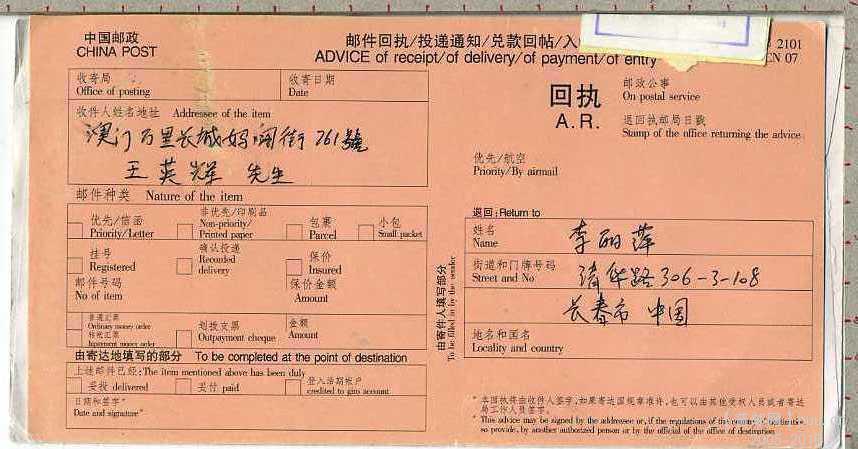 中国邮政
CHINA POST
邮件回执/投递通知/兑款回帖/入
2101
ADVICE of receipt/of delivery/of payment/of entry
CN 07
收寄局
Office of posting
收寄日期
Date
收件人姓名地址 Addressee of the item
澳门万里长城妈阁街761號
王英辉 先生
邮件种类 Nature of the item
优先/信函
Priority/Letter
非优先/印刷品
Non-priority/
Printed paper
包裹
Parcel
小包
Small packet
挂号
Registered
确认投递
Recorded
delivery
保价
Insured
邮件号码
No of item
保价金额
Amount
普通汇票
Ordinary money order
转账汇票
Inpayment money order
划拨支票
Outpayment cheque
金额
Amount
由寄达地填写的部分 To be completed at the point of destination
上述邮件已经:The item mentioned above has been duly
妥投 delivered
支付 paid
登入活期帐户
credited to giro account
日期和签字*
Date and signature*
回执
A.R.
邮政公事
On postal service
退回执邮局日戳
Stamp of the office returning the advice
优先/航空
Priority/By airmail
由寄件人填写部分
To be filled in by the sender
退回:Return to
姓名
Name
李丽萍
街道和门牌号码
Street and No
清华路306-3-108
长春市 中国
地名和国名
Locality and country
*本回执由收件人签字,如果寄达国规章准许,也可以由其他受权人员或者寄达
局工作人员签字。
*This advice may be signed by the addressee or, if the regulations of the country of destination
so provide, by another authorized person or by the official of the office of destination